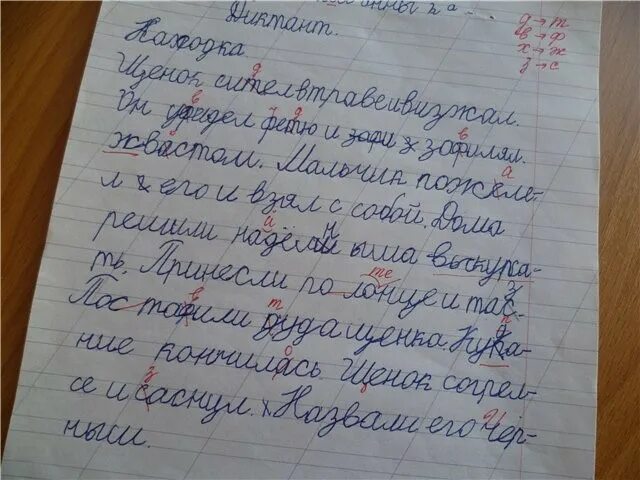 2а
Диктант.
Находка.
д → т
в → ф
х → ж
з → с
Щенок сителвтравеивизжал.
Он уфедел фетю и зафилял
жвастом. Мальчик пожеле-
л его и взял с собой. Дома
решили надёмыша выкупа-
ть. Принесли по лонце и таз.
Постафили дуда щенка. Купа-
ние кончилась. Щенок согрел-
се и саснул. Назвали его Чер-
ныш.